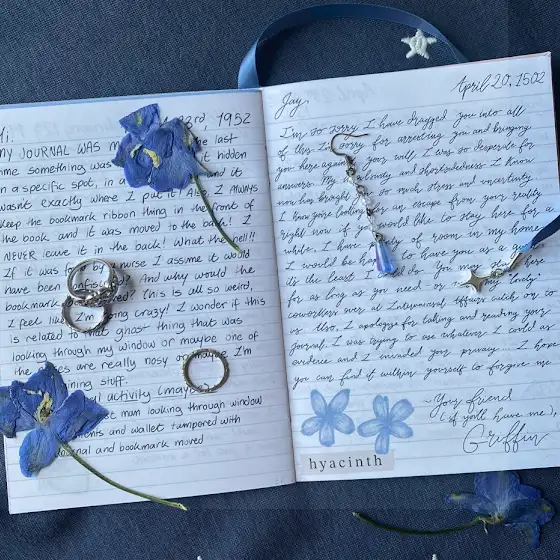 Hi. 23rd, 1952
MY JOURNAL WAS M the last
time something was it hidden
in a specific spot, in a and it
wasn't exactly where I put it! Also I ALWAYS
keep the bookmark ribbon thing in the front of
the book and it was moved to the back! I
NEVER leave it in the back! What the hell!!
If it was by a nurse I assume it would
have been And why would the
bookmark This is all so weird,
I feel like going crazy! I wonder if this
is related to that ghost thing that was
looking through my window or maybe one of
the are really nosy or maybe I'm
ining stuff.
al activity (maybe
t man looking through window
and wallet tampered with
Journal and bookmark moved
April 20, 1502
Jay,
I'm so sorry I have dragged you into all
of this. I'm sorry for arresting you and bringing
you here against your will, I was so desperate for
answers. My jealousy and shortsightedness I know
now has brought you so much stress and uncertainty.
I know you're looking for an escape from your reality
right now if you would like to stay here for a
while, I have plenty of room in my home
I would be to have you as a
it's the least I could do. You may stay here
for as long as you need or "my lovely"
coworkers over at Interpersonal Affairs catch on to
us. Also, I apologize for taking and reading your
journal, I was trying to use whatever I could as
evidence and I invaded your privacy. I hope
you can find it within yourself to forgive me.
~Your friend
(if you'll have me),
Griffin
hyacinth